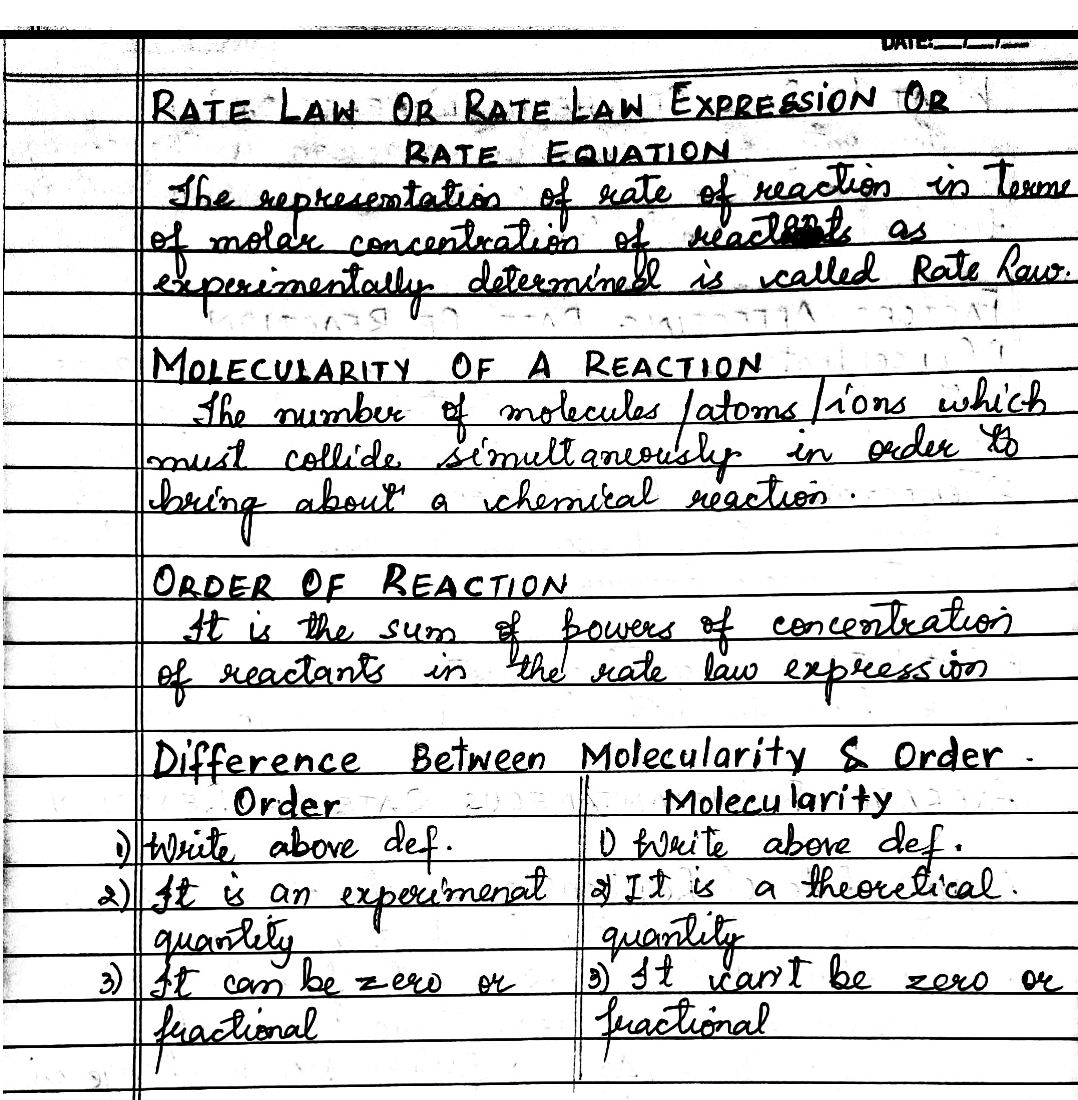 DATE:__/__/__
RATE LAW OR RATE LAW EXPRESSION OR
RATE EQUATION
The representation of rate of reaction in terms
of molar concentration of reactants as
experimentally determined is called Rate Law.
MOLECULARITY OF A REACTION
The number of molecules/atoms/ions which
must collide simultaneously in order to
bring about a chemical reaction.
ORDER OF REACTION
It is the sum of powers of concentration
of reactants in the rate law expression
Difference Between Molecularity & Order.
Order Molecularity
1) Write above def. 1) Write above def.
2) It is an experimenat 2) It is a theoretical.
quantity quantity
3) It can be zero or 3) It can't be zero or
fractional fractional